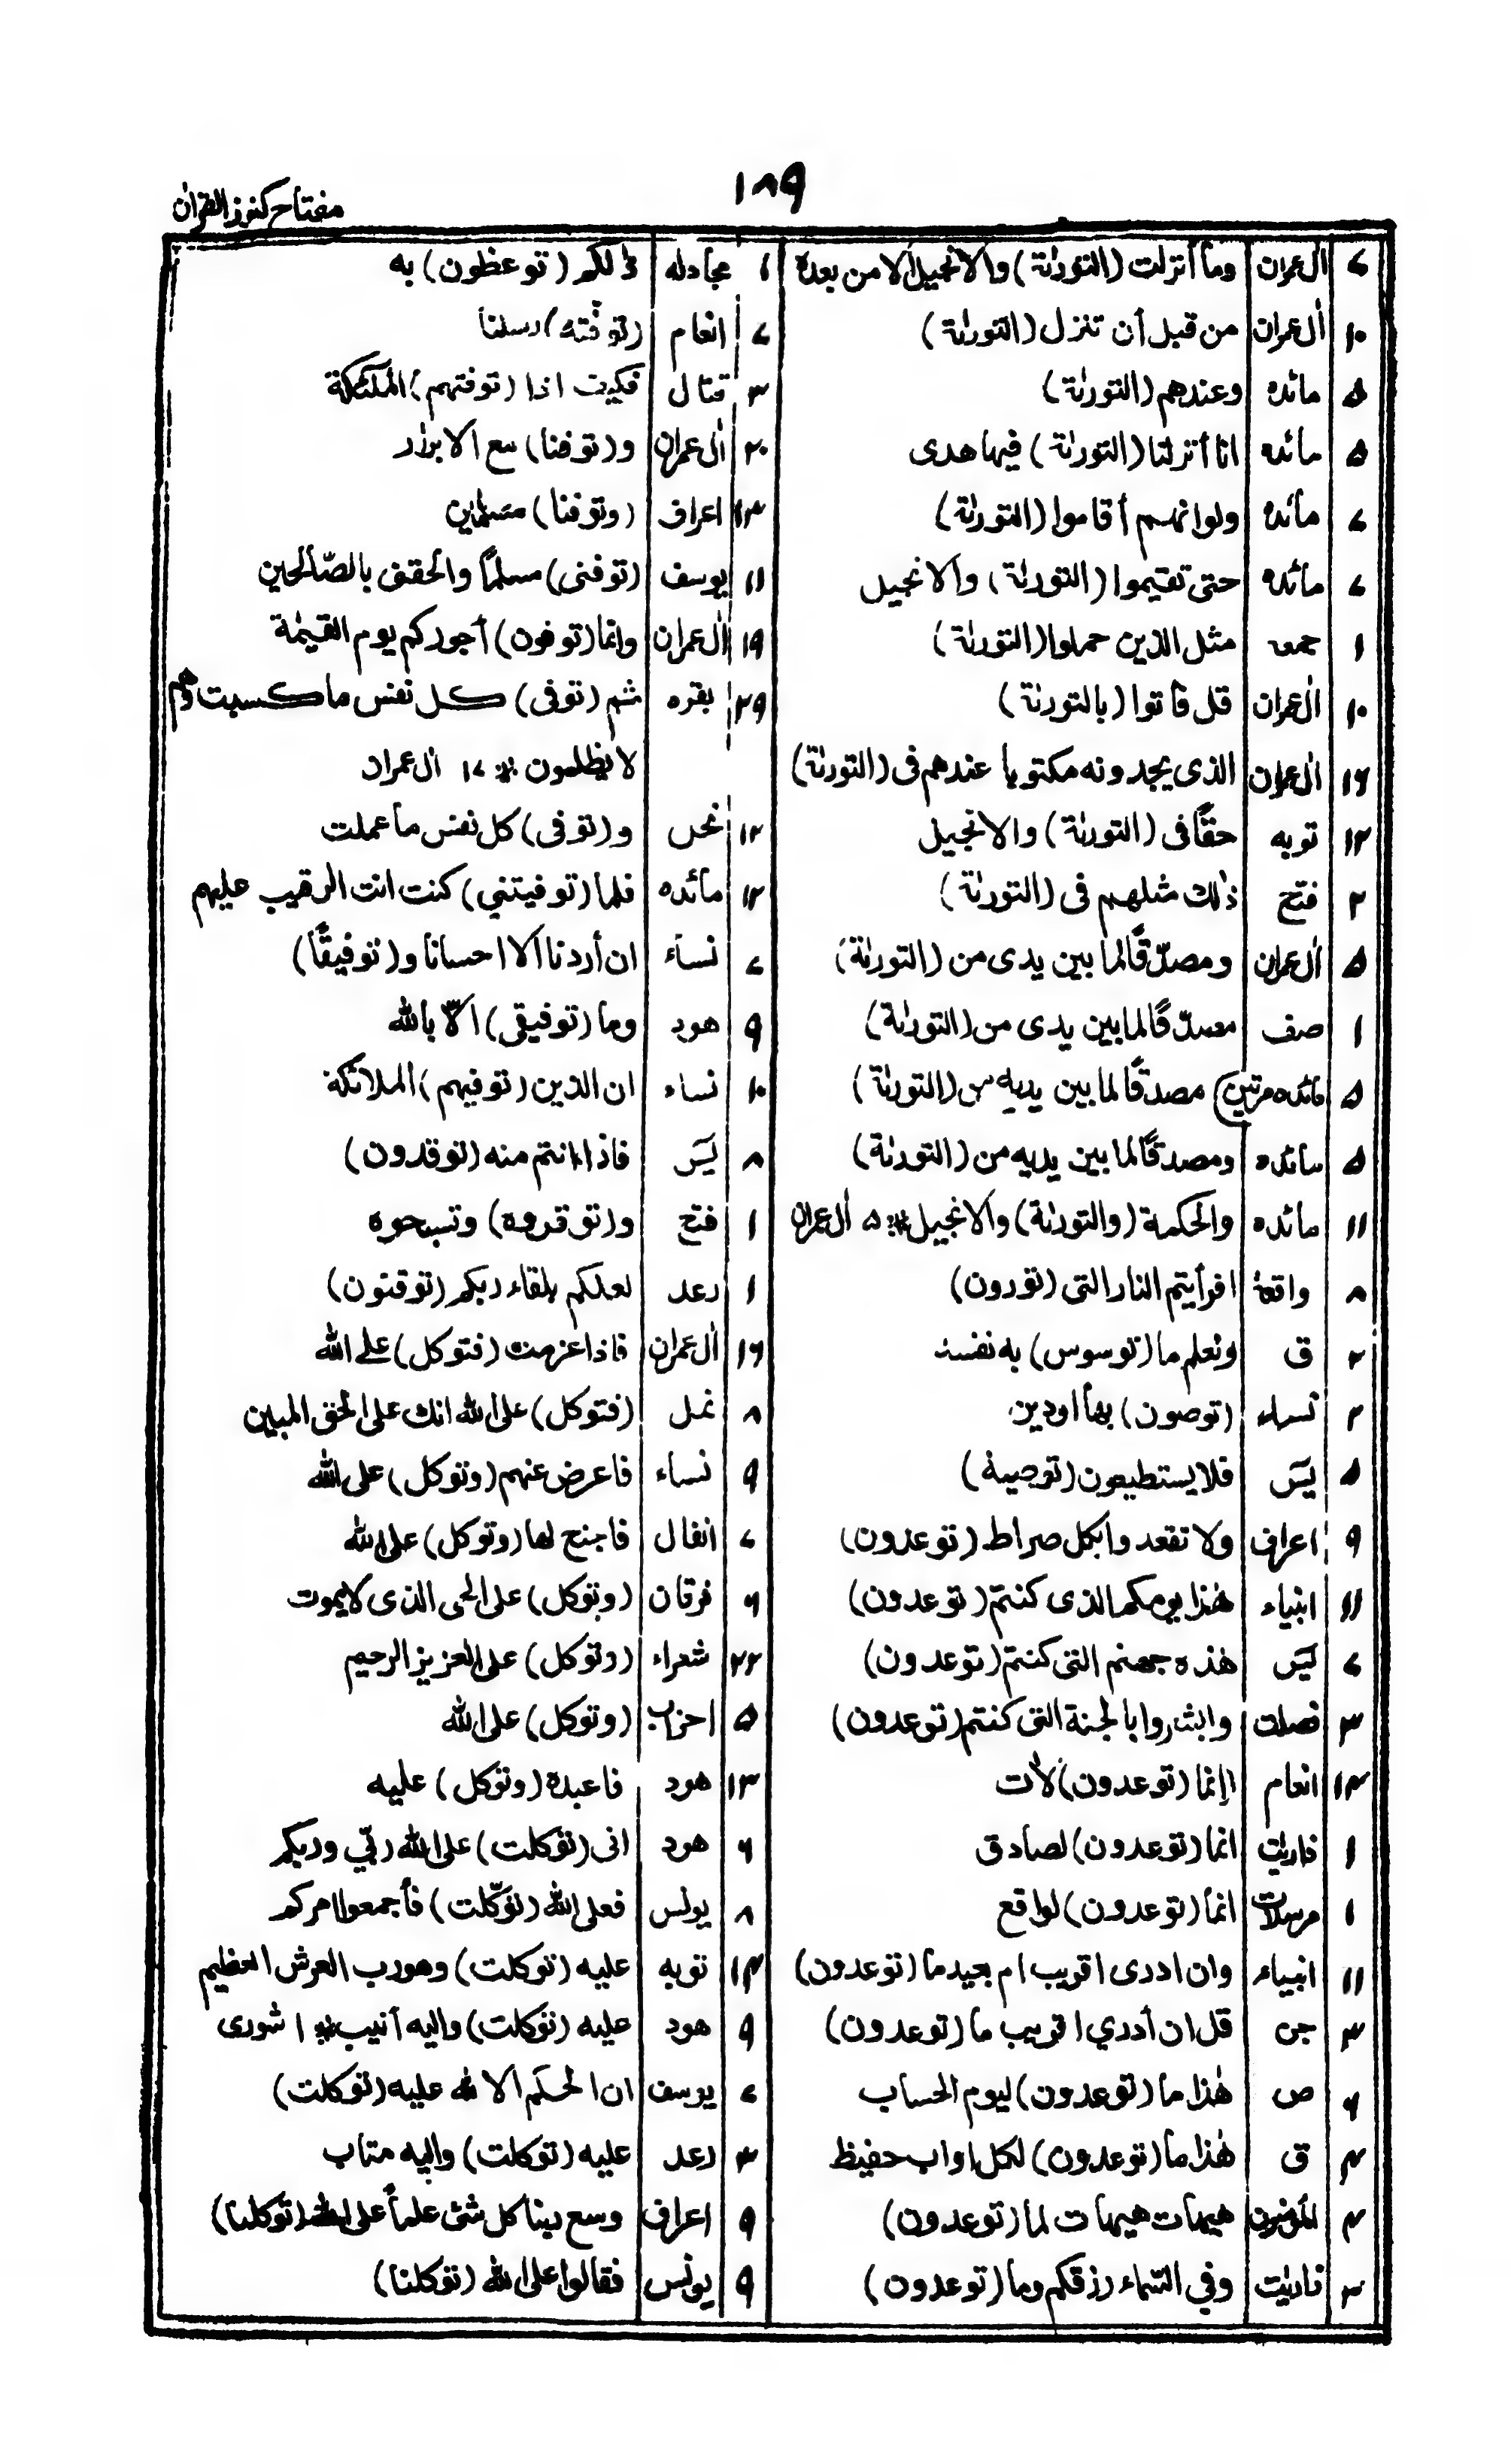 ١٨٩
مفتاح كنوز القرآن
٧ اٰل عمران وما أنزلت (التورىٰة) والانجيل الا من بعده
١٠ اٰل عمران من قبل أن تنزل (التورىٰة)
۵ مائده وعندهم (التورىٰة)
۵ مائده انا أنزلنا (التورىٰة) فيها هدى
٧ مائده ولو انهم أقاموا (التورىٰة)
٧ مائده حتى تقيموا (التورىٰة) والانجيل
١ جمعه مثل الذين حملوا (التورىٰة)
١٠ اٰل عمران قل فأتوا (بالتورىٰة)
١٦ اٰل عمران الذى يجدونه مكتوبا عندهم فى (التورىٰة)
١٣ توبه حقًا فى (التورىٰة) والانجيل
٢ فتح ذٰلك مثلهم فى (التورىٰة)
۵ اٰل عمران ومصدّقًا لما بين يدى من (التورىٰة)
١ صف مصدّقًا لما بين يدى من (التورىٰة)
۵ مائده مرتين مصدقًا لما بين يديه من (التورىٰة)
۵ مائده ومصدقًا لما بين يديه من (التورىٰة)
١١ مائده والحكمة (والتورىٰة) والانجيل ۵ اٰل عمران
٨ واقعة افرأيتم النار التى (تورون)
٢ ق ونعلم ما (توسوس) به نفسه
٢ نساء (توصون) بها أودين
۵ يٰسٓ فلا يستطيعون (توصية)
٩ اعراف ولا تقعدوا بكل صراط (توعدون)
١١ انبياء هٰذا يومكم الذى كنتم (توعدون)
٧ يٰسٓ هٰذه جهنم التى كنتم (توعدون)
٣ فصلت وابشروا بالجنة التى كنتم (توعدون)
١٣ انعام إنما (توعدون) لاٰت
١ ذاريٰت انما (توعدون) لصادق
١ مرسلات انما (توعدون) لواقع
١١ انبياء وان ادرى اقريب ام بعيد ما (توعدون)
٣ جن قل ان أدري اقريب ما (توعدون)
٦ ص هٰذا ما (توعدون) ليوم الحساب
٣ ق هٰذا ما (توعدون) لكل اواب حفيظ
٣ المؤمنون هيهات هيهات لما (توعدون)
٣ ذاريٰت وفي السّماء رزقكم وما (توعدون)
١ مجادله ذٰلكم (توعظون) به
٧ انعام (توفته) رسلنا
٣ قتال فكيف اذا (توفتهم) الملٰئكة
٢٠ اٰل عمران و (توفنا) مع الابرار
١٣ اعراف (وتوفنا) مسلمين
١١ يوسف (توفنى) مسلمًا والحقنى بالصّالحين
١٩ اٰل عمران وانما (توفون) أجوركم يوم القيٰمة
٣٩ بقره ثم (توفى) كل نفس ما كسبت وهم
لا يظلمون ١٧ اٰل عمران
١٢ نحل و (توفى) كل نفس ما عملت
١٢ مائده فلما (توفيتني) كنت انت الرقيب عليهم
٧ نساء ان أردنا الا احسانا و (توفيقًا)
٩ هود وما (توفيقى) الّا بالله
١٠ نساء ان الذين (توفيهم) الملائكة
٨ يٰسٓ فاذا انتم منه (توقدون)
١ فتح و (توقروه) وتسبحوه
١ رعد لعلكم بلقاء ربكم (توقنون)
١٦ اٰل عمران فاذا عزمت (فتوكل) على الله
٨ نمل (فتوكل) على الله انك على الحق المبين
٩ نساء فاعرض عنهم (وتوكل) على الله
٧ انفال فاجنح لها (وتوكل) على الله
٦ فرقان (وتوكل) على الحى الذى لا يموت
٢٢ شعراء (وتوكل) على العزيز الرحيم
۵ احزاب (وتوكل) على الله
١٣ هود فاعبده (وتوكل) عليه
٦ هود انى (توكلت) على الله ربّي وربكم
٨ يونس فعلى الله (توكّلت) فأجمعوا امركم
١٣ توبه عليه (توكلت) وهو رب العرش العظيم
٩ هود عليه (توكلت) واليه أنيب ١ شورى
٧ يوسف ان الحكم الا لله عليه (توكلت)
٣ رعد عليه (توكلت) واليه متاب
٩ اعراف وسع ربنا كل شئ علماً على الله (توكلنا)
٩ يونس فقالوا على الله (توكلنا)